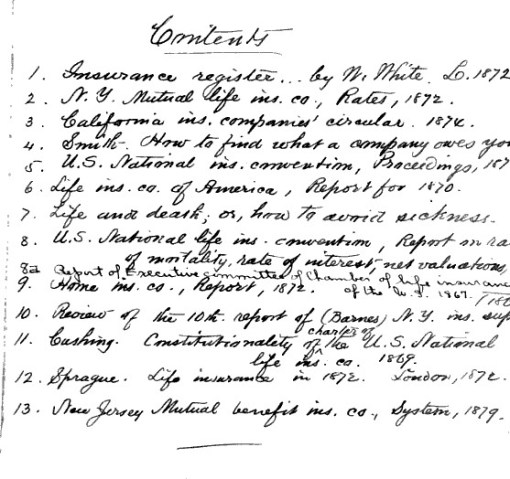 Contents
1. Insurance register... by W. White. L. 1872
2. N.Y. Mutual life ins. co., Rates, 1872.
3. California ins. companies' circular. 1874.
4. Smith. How to find what a company owes you
5. U.S. National ins. convention, Proceedings, 187
6. Life ins. co. of America, Report for 1870.
7. Life and death; or, how to avoid sickness.
8. U.S. National life ins. convention, Report on ra
of mortality, rate of interest, net valuations,
8a Report of Executive committee of Chamber of life insurance
of the U.S. 1867.
9. Home ins. co., Report, 1872.
10. Review of the 10th report of (Barnes) N.Y. ins. sup
11. Cushing. Constitutionality of the charter of U.S. National
life ins. co. 1869.
12. Sprague. Life insurance in 1872. London, 1872.
13. New Jersey Mutual benefit ins. co., System, 1879.